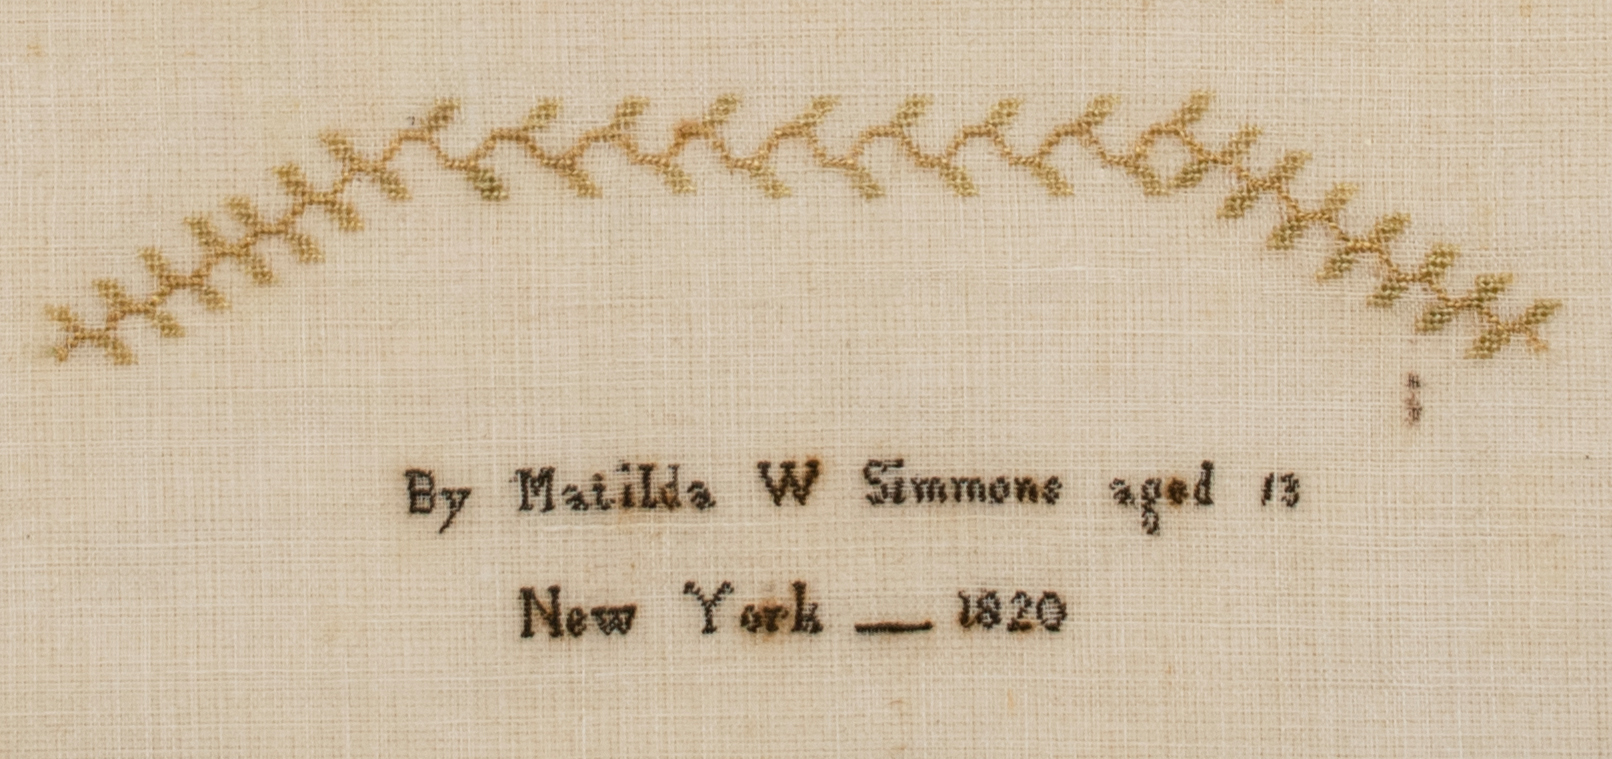 By Matilda W Simmons aged 13
New York — 1820